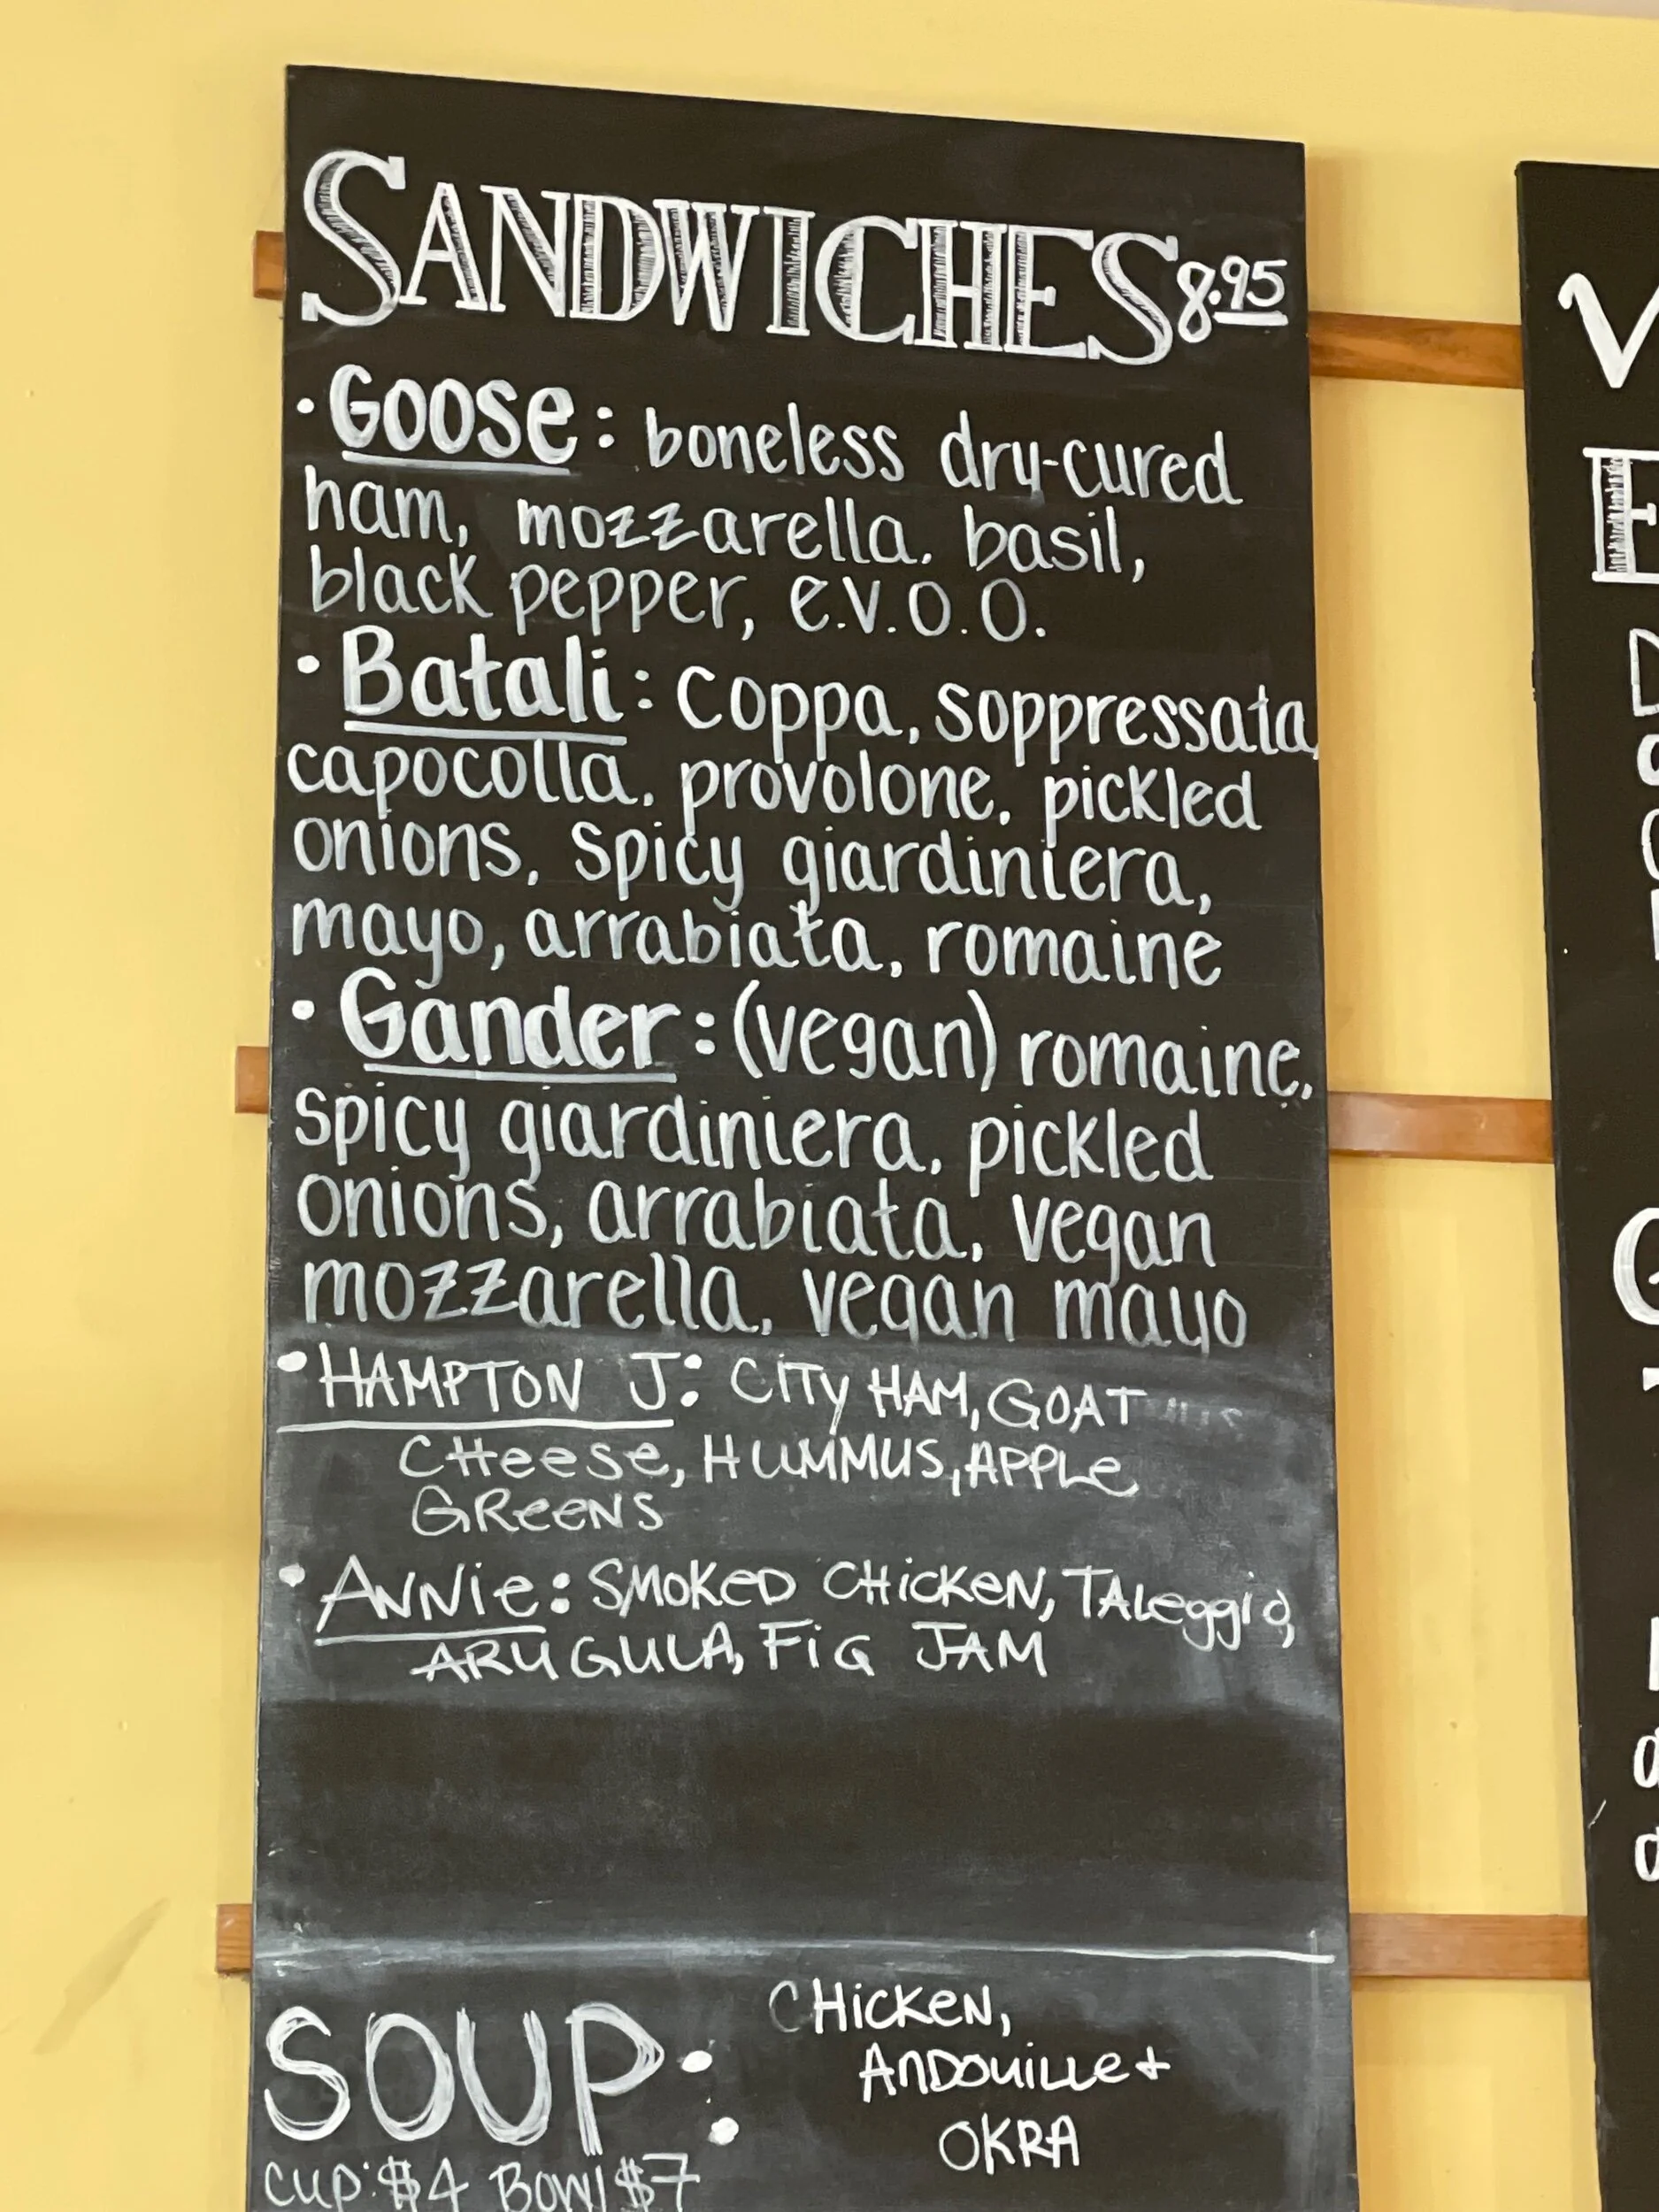 SANDWICHES 8.95
• Goose: boneless dry-cured
ham, mozzarella, basil,
black pepper, e.v.o.o.
• Batali: coppa, soppressata,
capocolla, provolone, pickled
onions, spicy giardiniera,
mayo, arrabiata, romaine
• Gander: (vegan) romaine,
spicy giardiniera, pickled
onions, arrabiata, vegan
mozzarella, vegan mayo
• HAMPTON J: CITY HAM, GOAT
CHeese, HUMMUS, APPLe
GReeNS
• ANNie: SMOKeD CHiCKeN, TALeggio,
ARUGULA, FiG JAM
SOUP: CHicKeN,
ANDouiLLe +
OKRA
cup: $4 Bowl $7